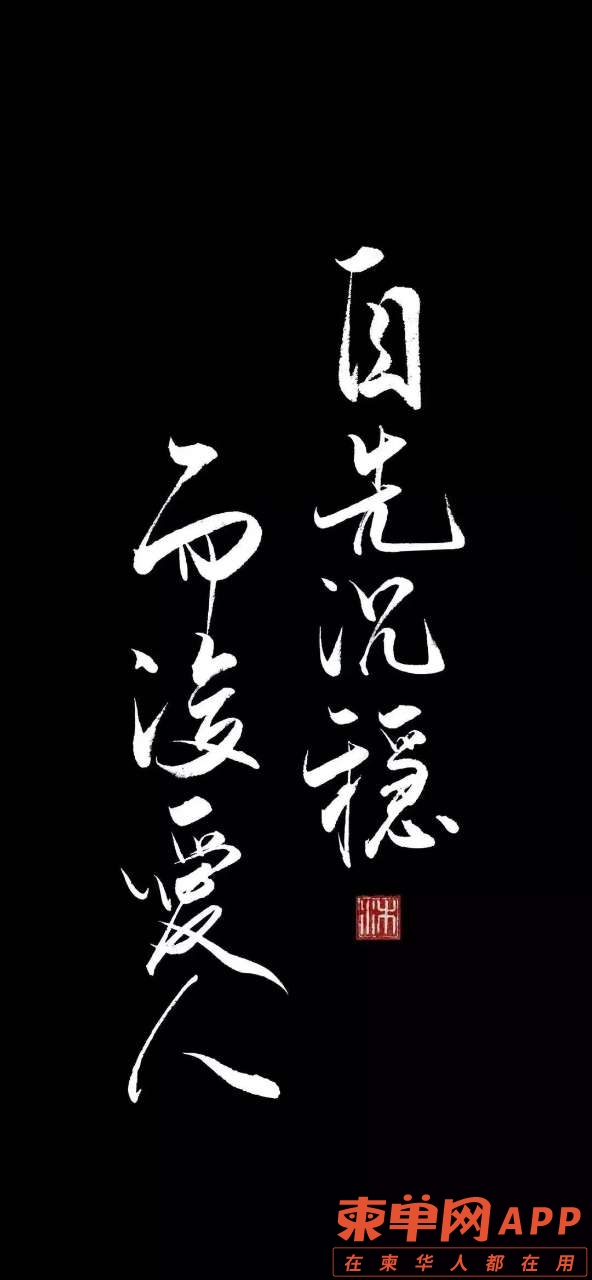 自先沉穩
而後愛人
柬单网APP
在柬华人都在用